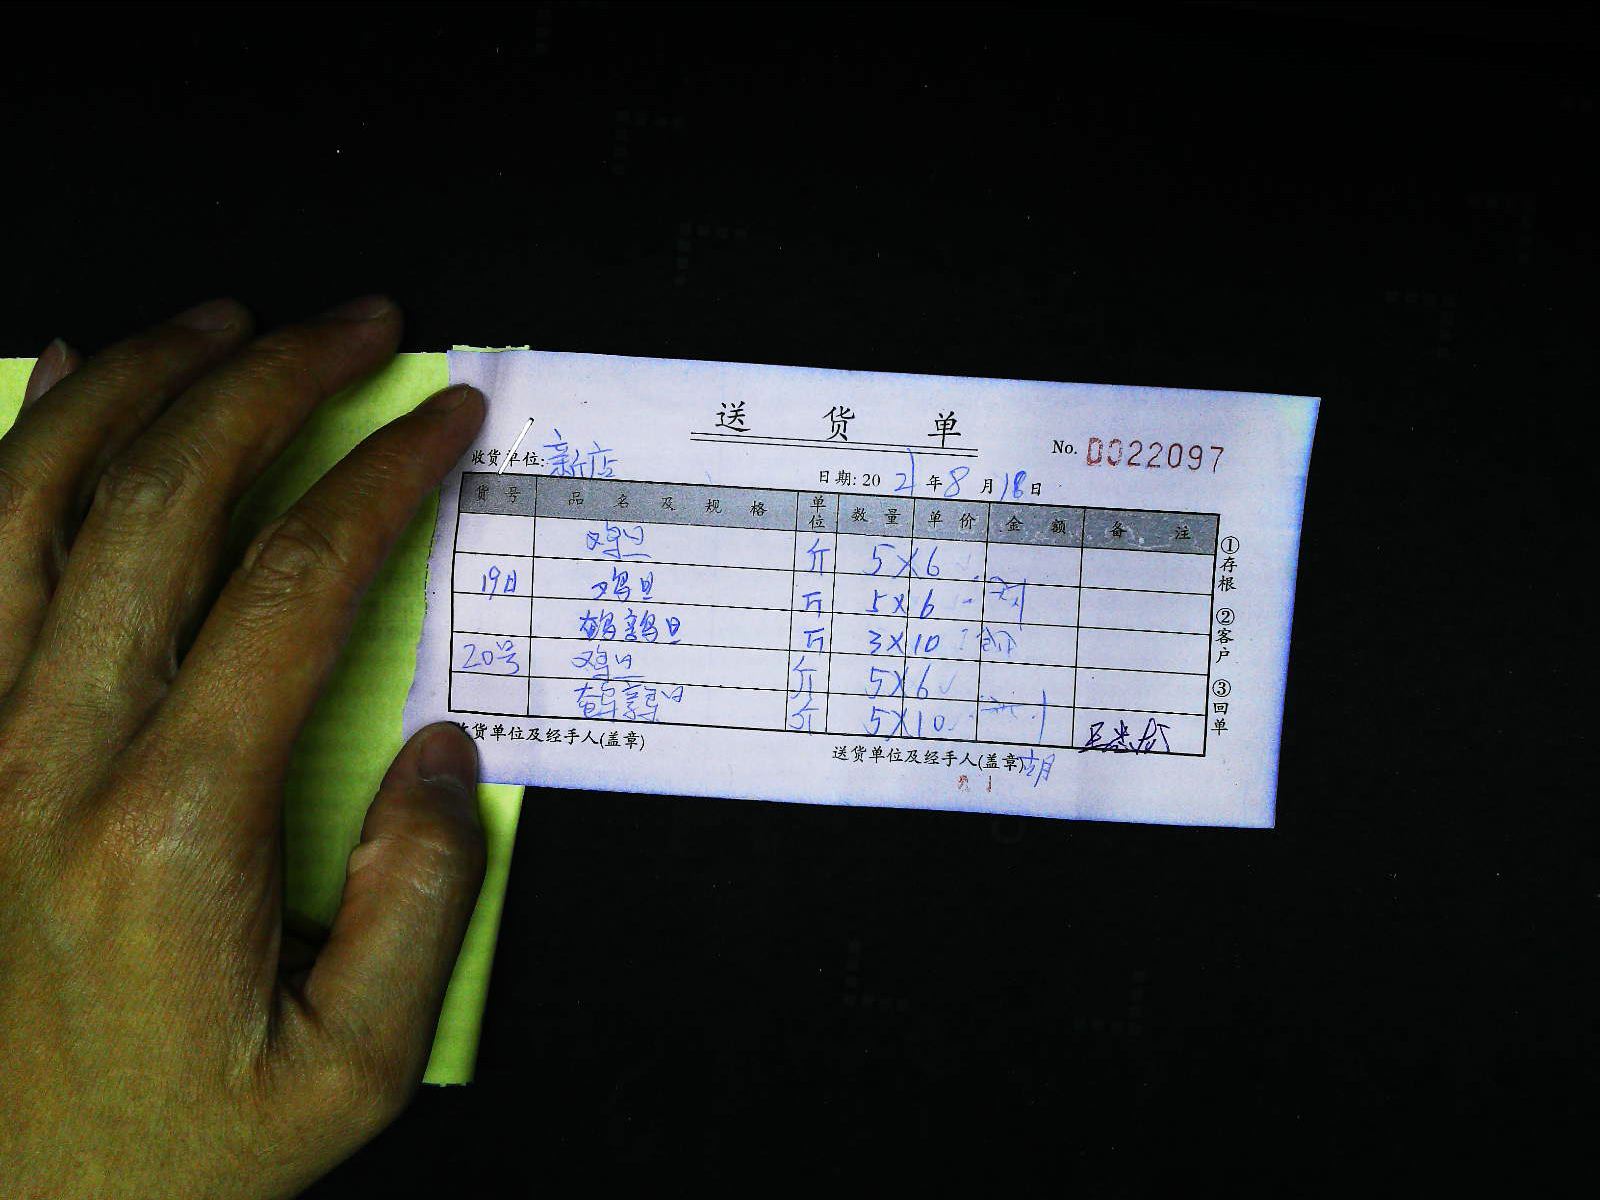 送 货 单
No. 0022097
收货单位: 新店
日期: 2021年8月18日
货号 品名及规格 单位 数量 单价 金额 备注
鸡旦 斤 5×6
19日 鸡旦 斤 5×6
鹌鹑旦 斤 3×10
20号 鸡旦 斤 5×6
鹌鹑旦 斤 5×10
收货单位及经手人(盖章)
送货单位及经手人(盖章)
①存根 ②客户 ③回单